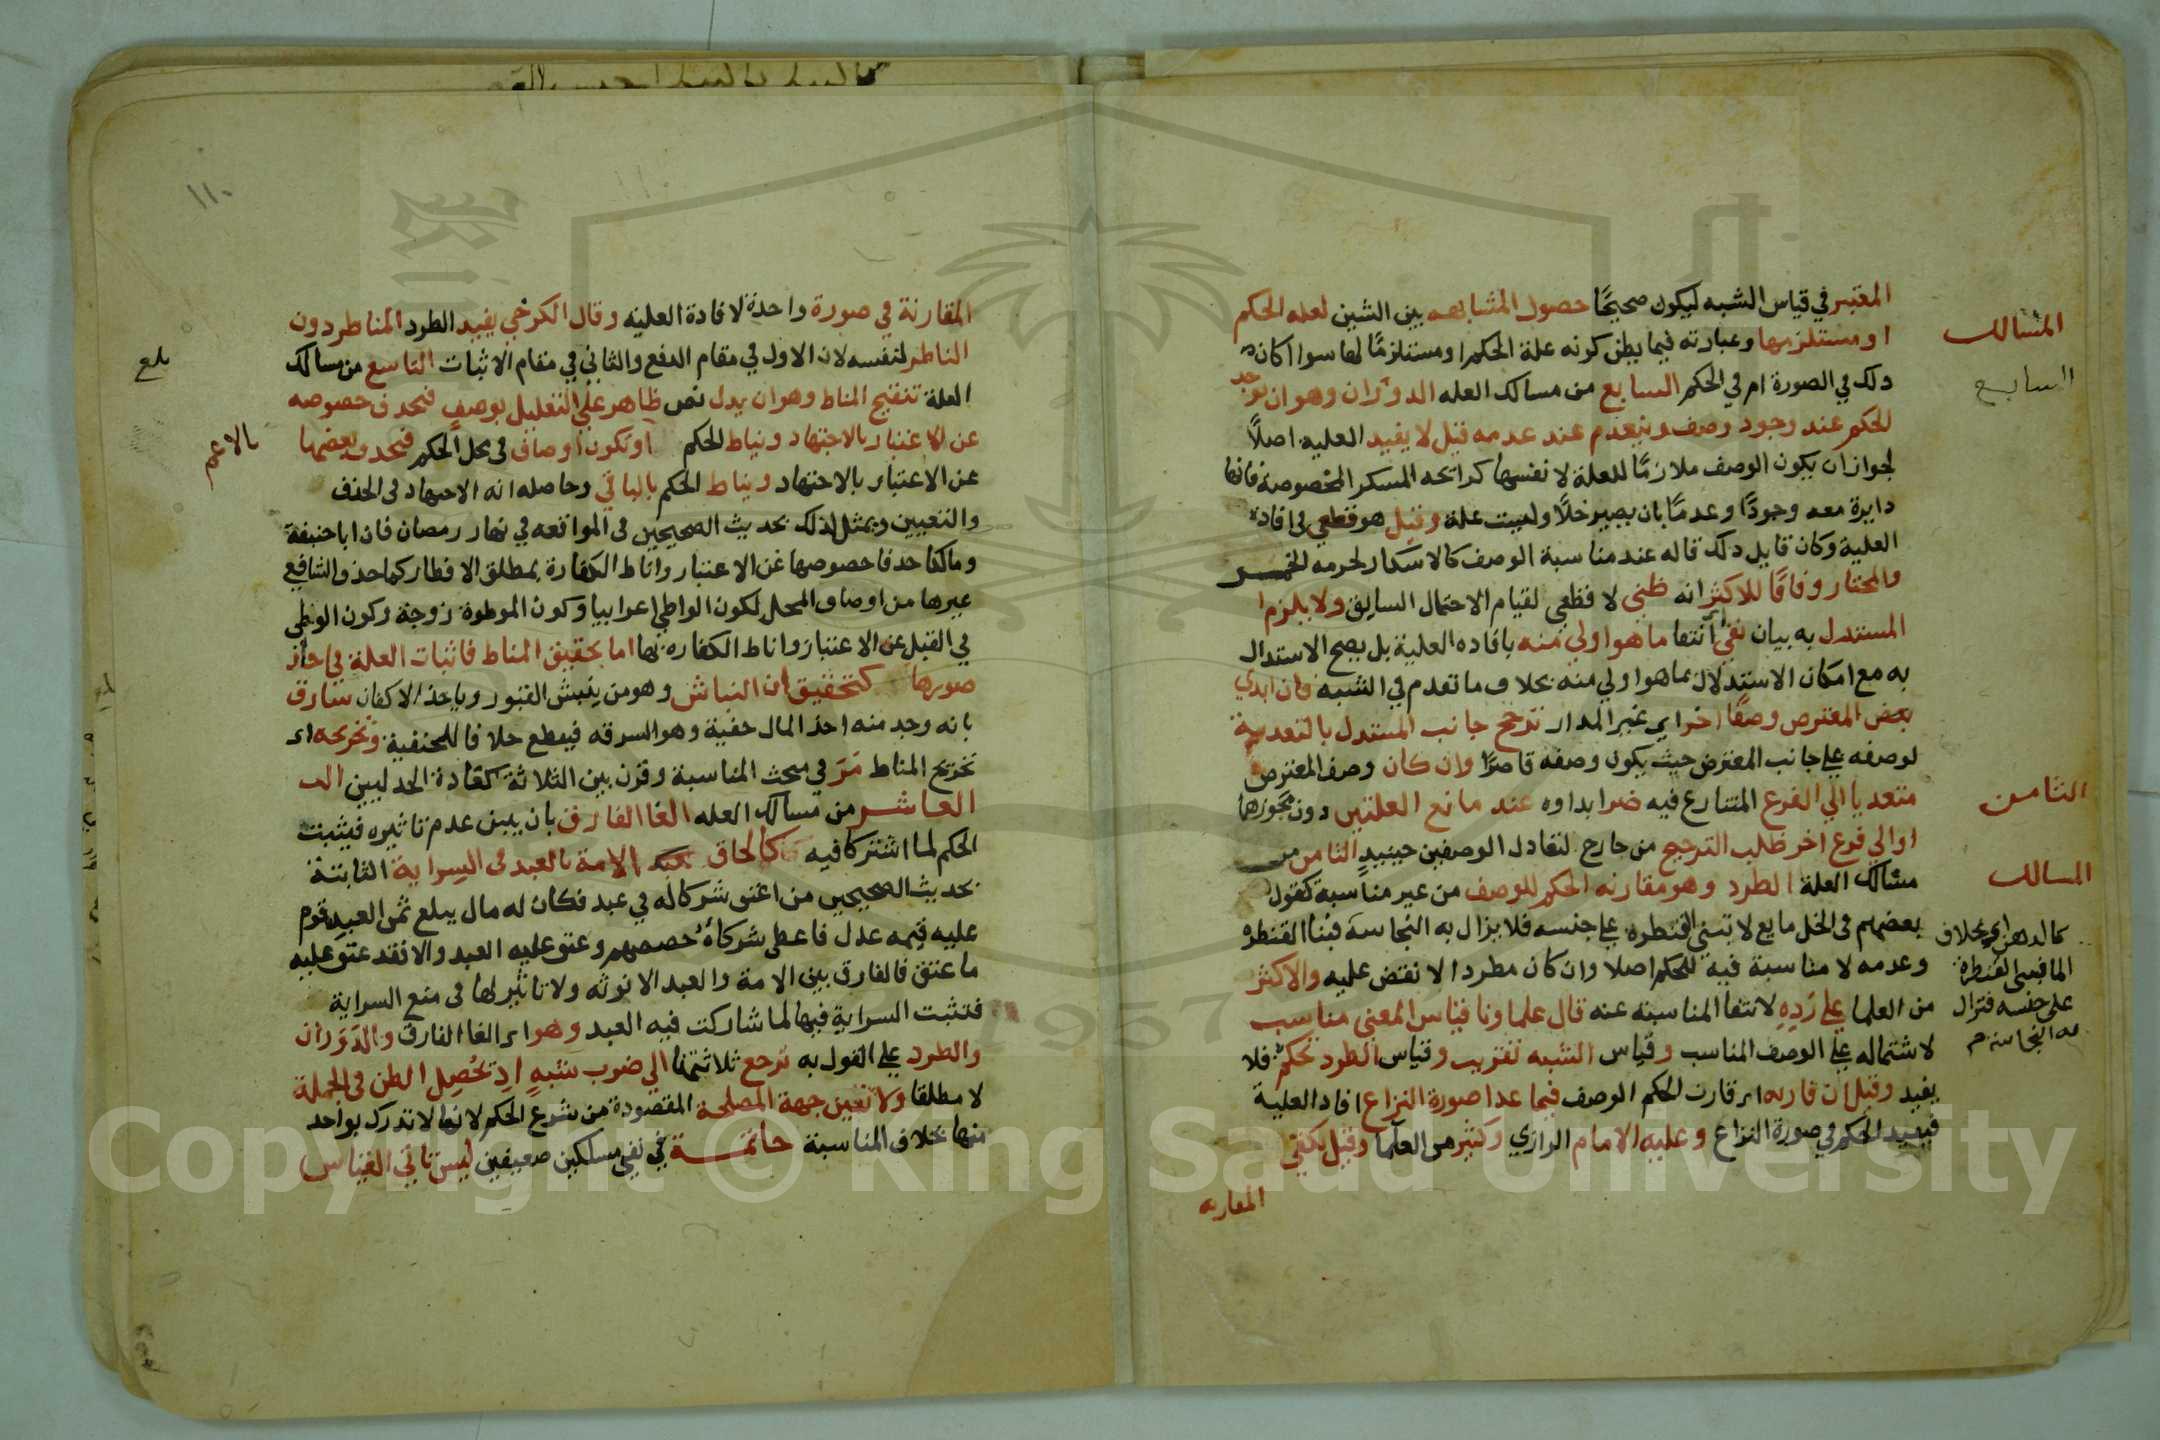 المعتبر في قياس الشبه ليكون صحيحًا حصول المشابهه بين الشين لعله الحكم
او مستلزمها وعبارته فيما يظن كونه علة الحكم او مستلزمًا لها سوا كان
دلك في الصورة ام في الحكم السابع من مسالك العله الدوران وهو ان يوجد
الحكم عند وجود وصف وينعدم عند عدمه قيل لا يفيد العليه اصلاً
لجواز ان يكون الوصف ملازمًا للعلة لا نفسها كرائحه المسكر المخصوصة فانها
دايرة معه وجودًا وعدمًا بان يصير خلاً وليست علة وقيل هو قطعي في افادة
العلية وكان قايل دلك قاله عند مناسبة الوصف كالاسكار لحرمه الخمر
والمختار وفاقًا للاكثر انه ظني لا قطعي لقيام الاحتمال السابق ولا يلزم
المستدل به بيان نفي انتفا ما هو اولي منه بافاده العلية بل يصح الاستدلال
به مع امكان الاستدلال بما هو اولي منه بخلاف ما تقدم في الشبه فان ابدي
بعض المعترض وصفًا اخر اي غير المدار ترجح جانب المستدل بالتعدية
لوصفه علي جانب المعترض حيث يكون وصفه قاصرًا وان كان وصف المعترض
متعديا الي الفرع المتنازع فيه ضر ابداوه عند مانع العلتين دون مجوزها
او الي فرع اخر طلب الترجيح من خارج لتعادل الوصفين حينيدٍ الثامن من
مسالك العلة الطرد وهو مقارنه الحكم للوصف من غير مناسبة كقول
بعضهم في الخل مايع لا تبني القنطره علي جنسه فلا يزال به النجاسة فبنا القنطره
وعدمه لا مناسبة فيه للحكم اصلا وان كان مطردا لا نقض عليه والاكثر
من العلما علي رده لانتفا المناسبة عنه قال علماونا قياس المعني مناسب
لاشتماله علي الوصف المناسب وقياس الشبه تقريب وقياس الطرد تحكم فلا
يفيد وقيل ان قارنه اي قارن الحكم الوصف فيما عدا صورة النزاع افاد العلية
فيفيد الحكم في صورة النزاع وعليه الامام الرازي وكثير من العلما وقيل يكفي
المقارنه
المسالك
السابع
الثامن
المسالك
كالدهن اي بخلاف
الما فيبني القنطرة
علي جنسه فتزال
به النجاسة م
١١٠
المقارنة في صورة واحدة لافادة العليه وقال الكرخي يفيد الطرد المناظر دون
الناظر لنفسه لان الاول في مقام الدفع والثاني في مقام الاثبات التاسع من مسالك
العلة تنقيح المناط وهو ان يدل نص ظاهر علي التعليل بوصف فيحدف خصوصه
عن الاعتبار بالاجتهاد ويناط الحكم او تكون اوصاف في محل الحكم فيحدف بعضها
عن الاعتبار بالاجتهاد ويناط الحكم بالباقي وحاصله انه الاجتهاد في الحذف
والتعيين ويمثل لذلك بحديث الصحيحين في المواقعه في نهار رمضان فان ابا حنيفة
ومالكا حدفا خصوصها عن الاعتبار واناط الكفارة بمطلق الافطار كما حذف الشافعي
غيرها من اوصاف المحل لكون الواطي اعرابيا وكون الموطوة زوجة وكون الوطي
في القبل عن الاعتبار واناط الكفاره بها اما تحقيق المناط فاثبات العلة في احاد
صورها كتحقيق ان النباش وهو من ينبش القبور وياخذ الاكفان سارق
بانه وجد منه اخذ المال خفية وهو السرقه فيقطع خلافا للحنفية وتخريجه اي
تخريج المناط مر في مبحث المناسبة وقرن بين الثلاثة كعادة الجدليين
العاشر من مسالك العله الغا الفارق بان يبين عدم تاثيره فيثبت
الحكم لما اشتركا فيه كالحاق الامة بالعبد في السراية الثابتة
بحديث الصحيحين من اعتق شركا له في عبد فكان له مال يبلغ ثمن العبد قوم
عليه قيمه عدل فاعطي شركاه حصصهم وعتق عليه العبد والا فقد عتق عليه
ما عتق فالفارق بين الامة والعبد الانوثه ولا تاثير لها في منع السراية
فتثبت السراية فيها لما شاركت فيه العبد وهو اي الغا الفارق والدوران
والطرد علي القول به ترجع ثلاثتها الي ضرب شبه اذ تحصل الظن في الجملة
لا مطلقا ولا تعين جهة المصلحة المقصودة من شرع الحكم لانها لا تدرك بواحد
منها بخلاف المناسبة خاتمة في نفي مسلكين ضعيفين ليس تاتي القياس
بلغ
بالاعم
Copyright © King Saud University
1957